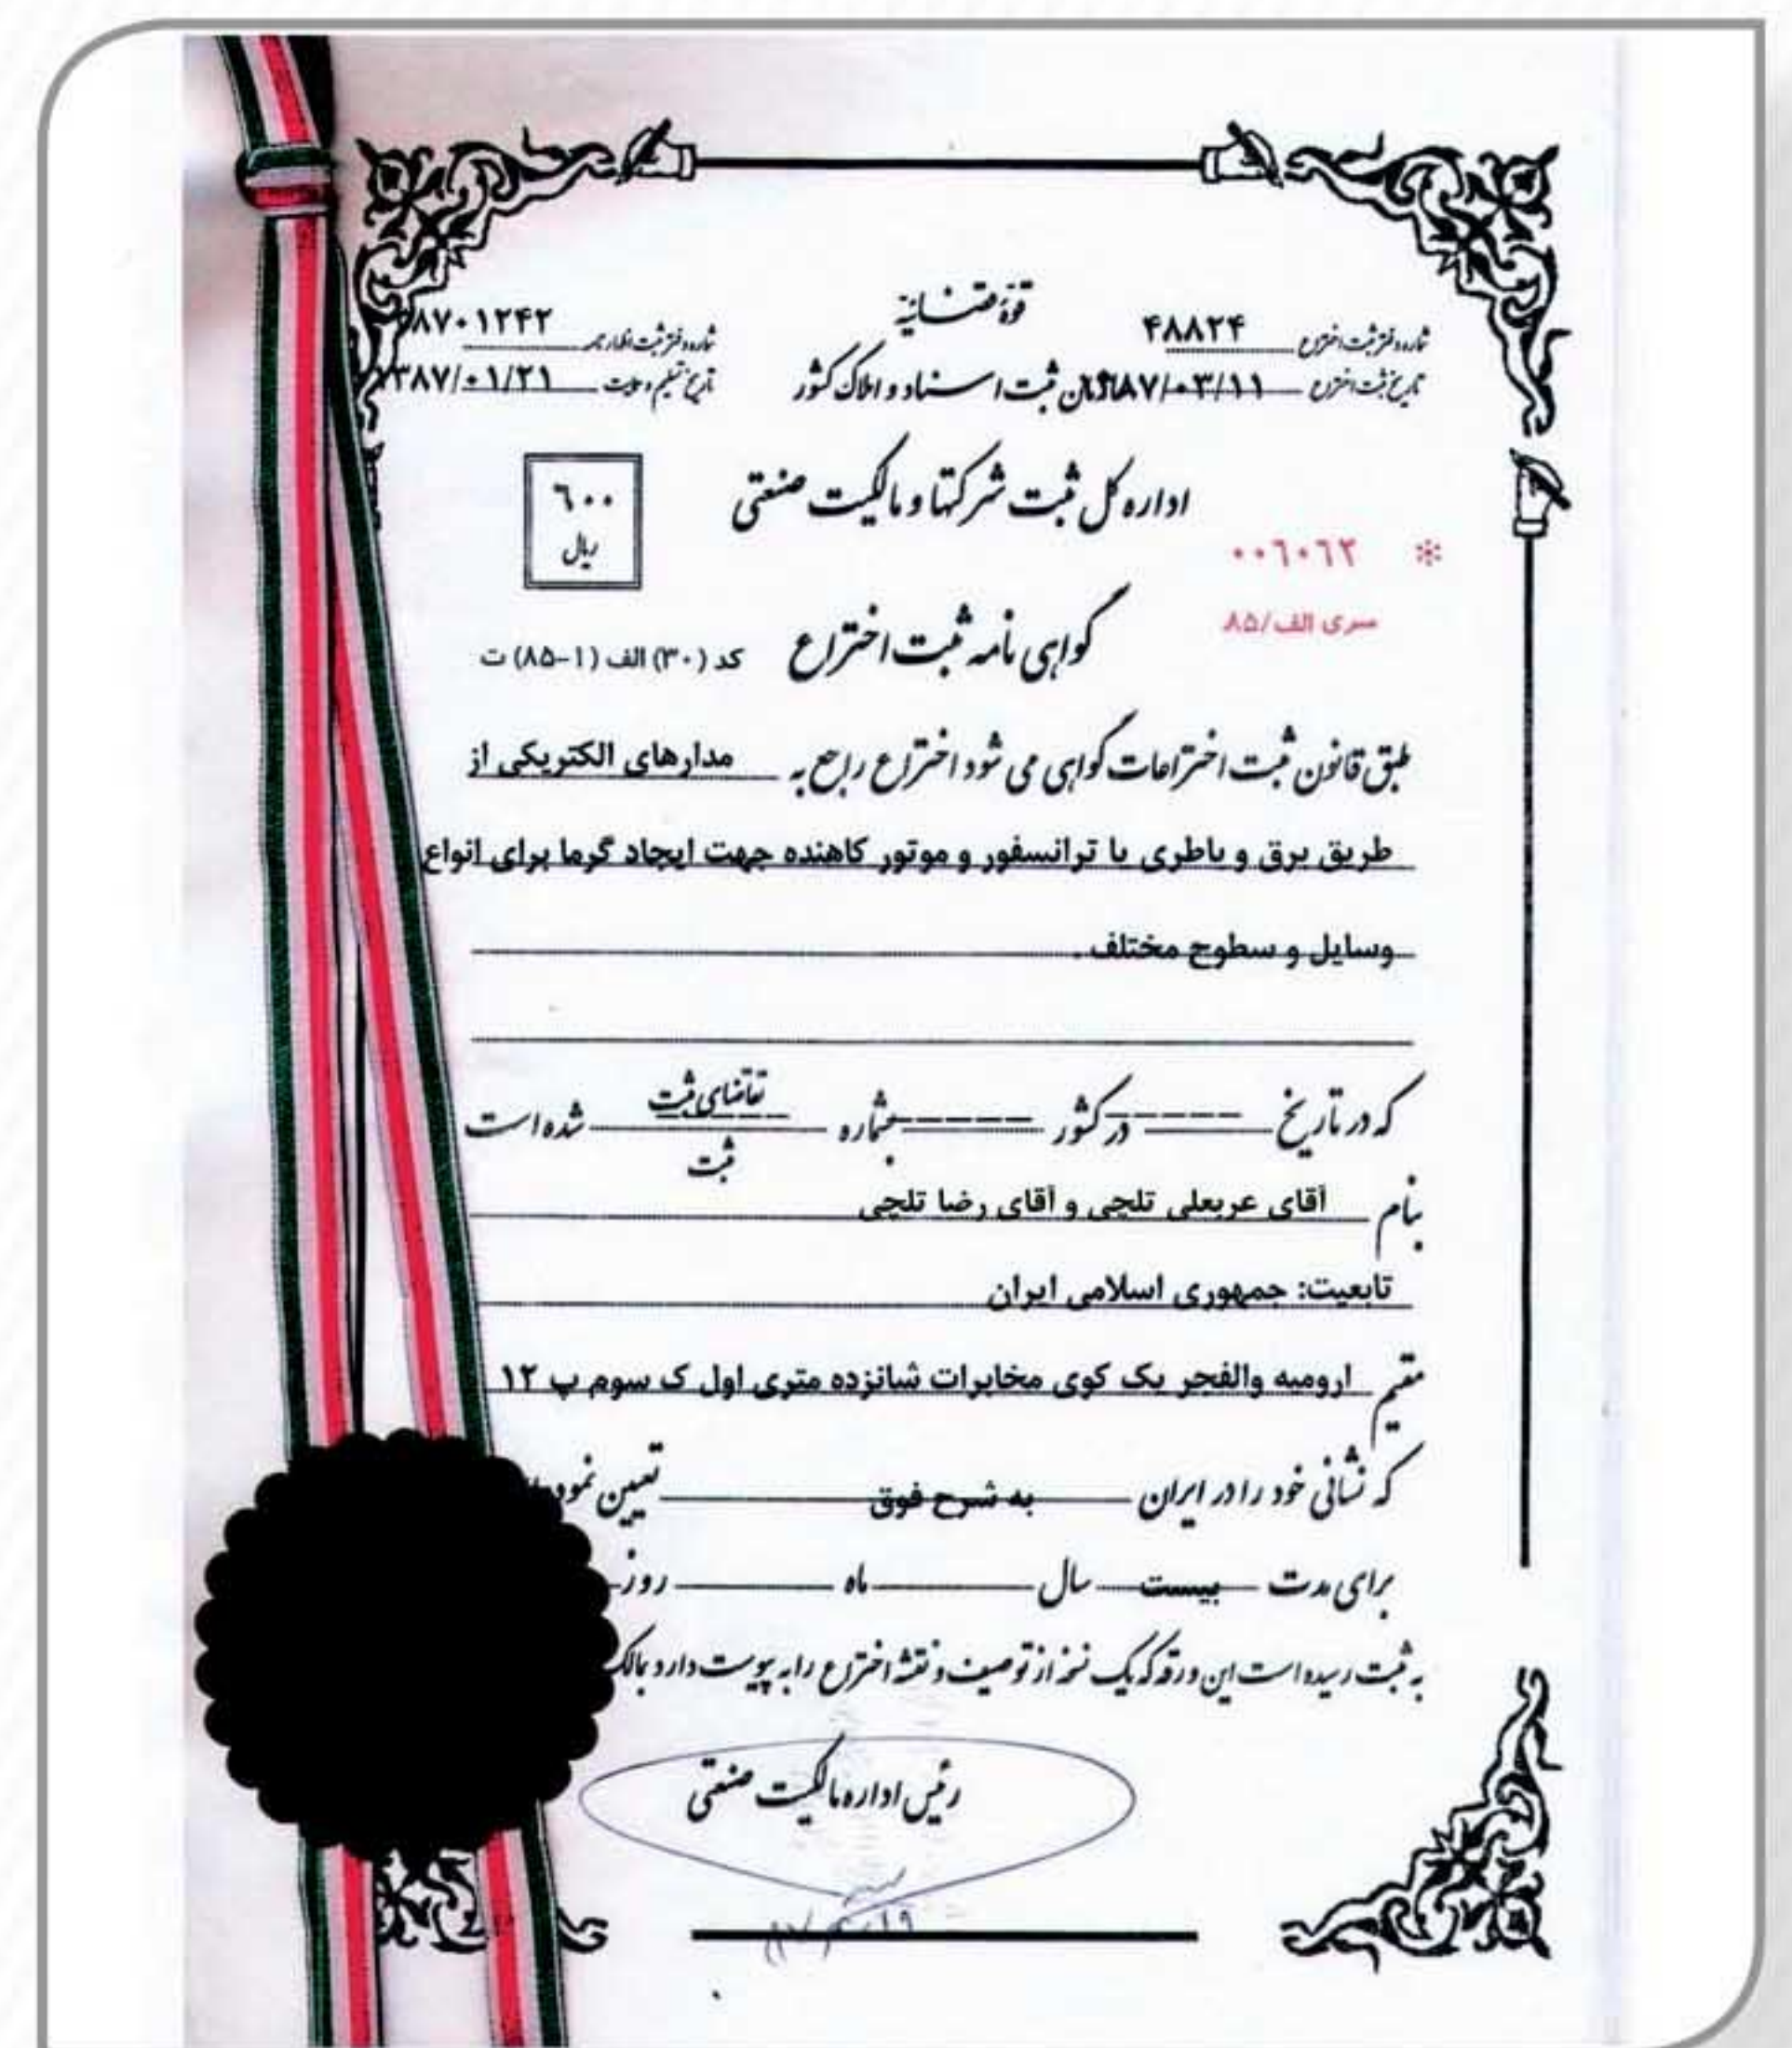 قوهٔ قضائیه
شماره دفتر ثبت اختراع ۴۸۸۲۴
شماره دفتر ثبت اظهارنامه ۸۷۰۱۲۴۲
تاریخ ثبت اختراع ۸۷/۰۳/۱۱
ثبت اسناد و املاک کشور
تاریخ تسلیم و ۱۳۸۷/۰۱/۲۱
اداره کل ثبت شرکتها و مالکیت صنعتی
۶۰۰
ریال
* ۰۰۶۰۶۲
سری الف/۸۵
گواهی نامه ثبت اختراع
کد (۳۰) الف (۱-۸۵) ت
طبق قانون ثبت اختراعات گواهی می شود اختراع راجع به مدارهای الکتریکی از
طریق برق و باطری با ترانسفور و موتور کاهنده جهت ایجاد گرما برای انواع
وسایل و سطوح مختلف .
که در تاریخ ------ در کشور ------ بشماره تقاضای ثبت شده است
ثبت
بنام آقای عربعلی تلچی و آقای رضا تلچی
تابعیت: جمهوری اسلامی ایران
مقیم ارومیه والفجر یک کوی مخابرات شانزده متری اول ک سوم پ ۱۲
که نشانی خود را در ایران به شرح فوق تعیین
برای مدت بیست سال ماه روز
به ثبت رسیده است این ورقه که یک نسخه از توصیف و نقشه اختراع را به پیوست دارد بمالک
رئیس اداره مالکیت صنعتی